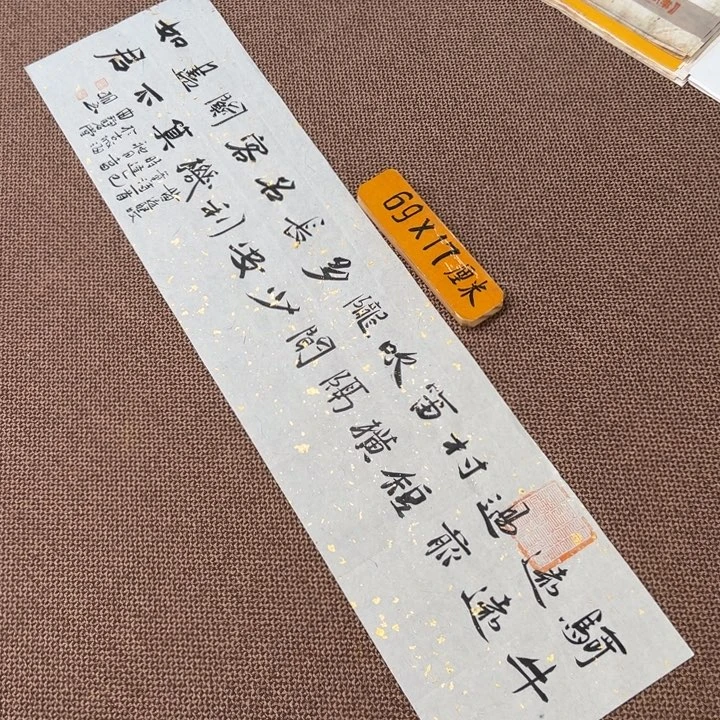 騎牛
遠遠
過前
村短
笛橫
吹隔
隴聞
多少
長安
名利
客機
關算
盡不
如君
69X17厘米